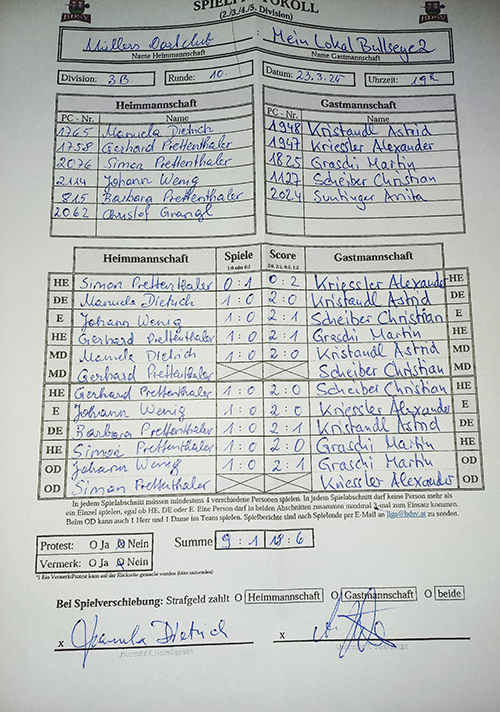 SPIELPROTOKOLL
(2./3./4./5. Division)
BDSV BDSV
Müllers Dartclub : Mein Lokal Bullseye 2
Name Heimmannschaft Name Gastmannschaft
Division: 3B Runde: 10. Datum: 23.3.24 Uhrzeit:
Heimmannschaft Gastmannschaft
PC - Nr. Name PC - Nr. Name
1765 Manuela Dietrich 1948 Kristandl Astrid
1758 Gerhard Prettenthaler 1947 Kriessler Alexander
2076 Simon Prettenthaler 1825 Graschi Martin
2114 Johann Wenig 1127 Scheiber Christian
815 Barbara Prettenthaler 2024 Suntinger Anita
2062 Christof Grangl
Heimmannschaft Spiele Score Gastmannschaft
1:0 oder 0:1 2:0, 2:1, 0:2, 1:2
HE Simon Prettenthaler 0 : 1 0 : 2 Kriessler Alexander HE
DE Manuela Dietrich 1 : 0 2 : 0 Kristandl Astrid DE
E Johann Wenig 1 : 0 2 : 1 Scheiber Christian E
HE Gerhard Prettenthaler 1 : 0 2 : 1 Graschi Martin HE
MD Manuela Dietrich 1 : 0 2 : 0 Kristandl Astrid MD
MD Gerhard Prettenthaler Scheiber Christian MD
HE Gerhard Prettenthaler 1 : 0 2 : 0 Scheiber Christian HE
E Johann Wenig 1 : 0 2 : 0 Kriessler Alexander E
DE Barbara Prettenthaler 1 : 0 2 : 1 Kristandl Astrid DE
HE Simon Prettenthaler 1 : 0 2 : 0 Graschi Martin HE
OD Johann Wenig 1 : 0 2 : 1 Graschi Martin OD
OD Simon Prettenthaler Kriessler Alexander OD
In jedem Spielabschnitt müssen mindestens 4 verschiedene Personen spielen. In jedem Spielabschnitt darf keine Person mehr als
ein Einzel spielen, egal ob HE, DE oder E. Eine Person darf in beiden Abschnitten zusammen maximal 3-mal zum Einsatz kommen.
Beim OD kann auch 1 Herr und 1 Dame im Team spielen. Spielberichte sind nach Spielende per E-Mail an liga@bdsv.at zu senden.
Protest: O Ja O Nein Summe 9 : 1 18 : 6
Vermerk: O Ja O Nein
*) Ein Vermerk/Protest kann auf der Rückseite gemacht werden (bitte mitsenden)
Bei Spielverschiebung: Strafgeld zahlt O Heimmannschaft O Gastmannschaft O beide
x Manuela Dietrich x